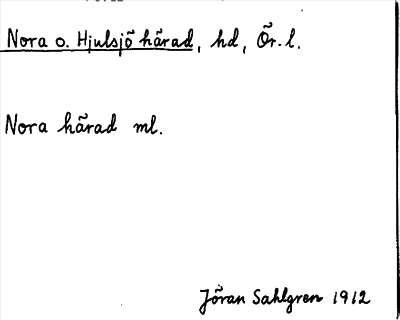 Nora o. Hjulsjö härad, hd, Ör. l.
Nora härad ml.
Jöran Sahlgren 1912